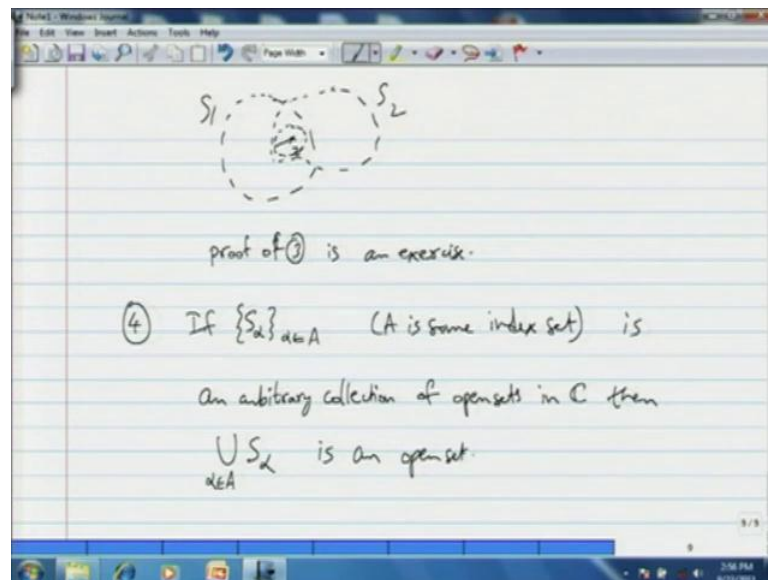 Note1 - Windows Journal
File Edit View Insert Actions Tools Help
Page Width
S1
S2
x
proof of ③ is an exercise.
④ If {Sα}α∈A (A is some index set) is
an arbitrary collection of open sets in ℂ then
⋃ Sα is an open set.
α∈A
5/5
9
2:56 PM